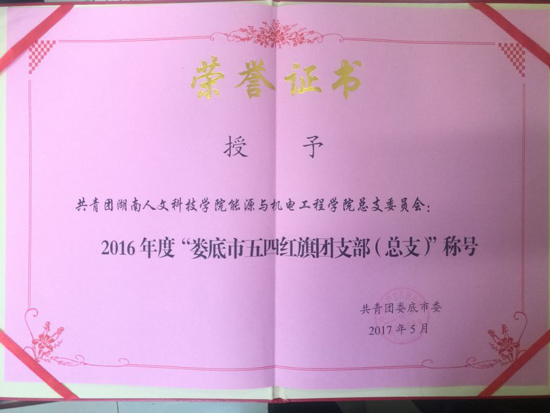 荣誉证书
授 予
共青团湖南人文科技学院能源与机电工程学院总支委员会：
2016 年度“娄底市五四红旗团支部（总支）”称号
共青团娄底市委
2017 年 5 月